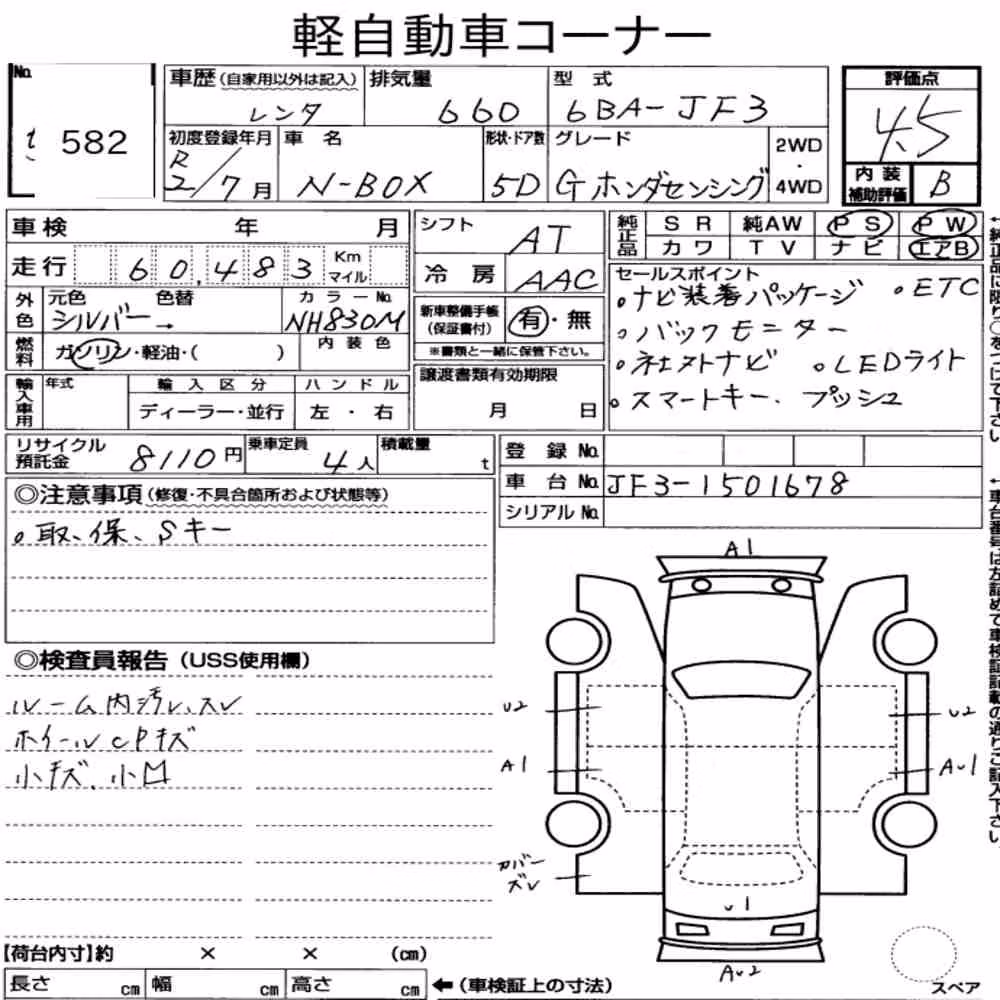 軽自動車コーナー
No. 582
車歴(自家用以外は記入) 排気量 型式 評価点
レンタ 660 6BA-JF3 4.5
初度登録年月 車名 形状・ドア数 グレード 2WD・4WD
R2/7月 N-BOX 5D G ホンダセンシング
内装補助評価 B
車検 年 月 シフト AT 純正品 SR 純AW PS PW
カワ TV ナビ エアB
走行 60,483 Km マイル 冷房 AAC
セールスポイント
。ナビ装着パッケージ 。ETC
。バックモニター
。社外ナビ 。LEDライト
。スマートキー、プッシュ
外色 元色 色替 カラーNo.
シルバー→ NH830M
新車整備手帳(保証書付) 有・無
※書類と一緒に保管下さい。
燃料 ガソリン・軽油・( ) 内装色
譲渡書類有効期限
月 日
輸入車用 年式 輸入区分 ハンドル
ディーラー・並行 左・右
リサイクル預託金 8110円 乗車定員 4人 積載量 t
登録No.
車台No. JF3-1501678
シリアルNo.
◎注意事項(修復・不具合箇所および状態等)
。取、保、Sキー
◎検査員報告(USS使用欄)
ルーム内汚レ、スレ
ホイールCPキズ
小キズ、小凹
A1
U2
U2
A1
AU1
カバーズレ
U1
AU2
スペア
【荷台内寸】約 × × (cm)
長さ cm 幅 cm 高さ cm ←(車検証上の寸法)